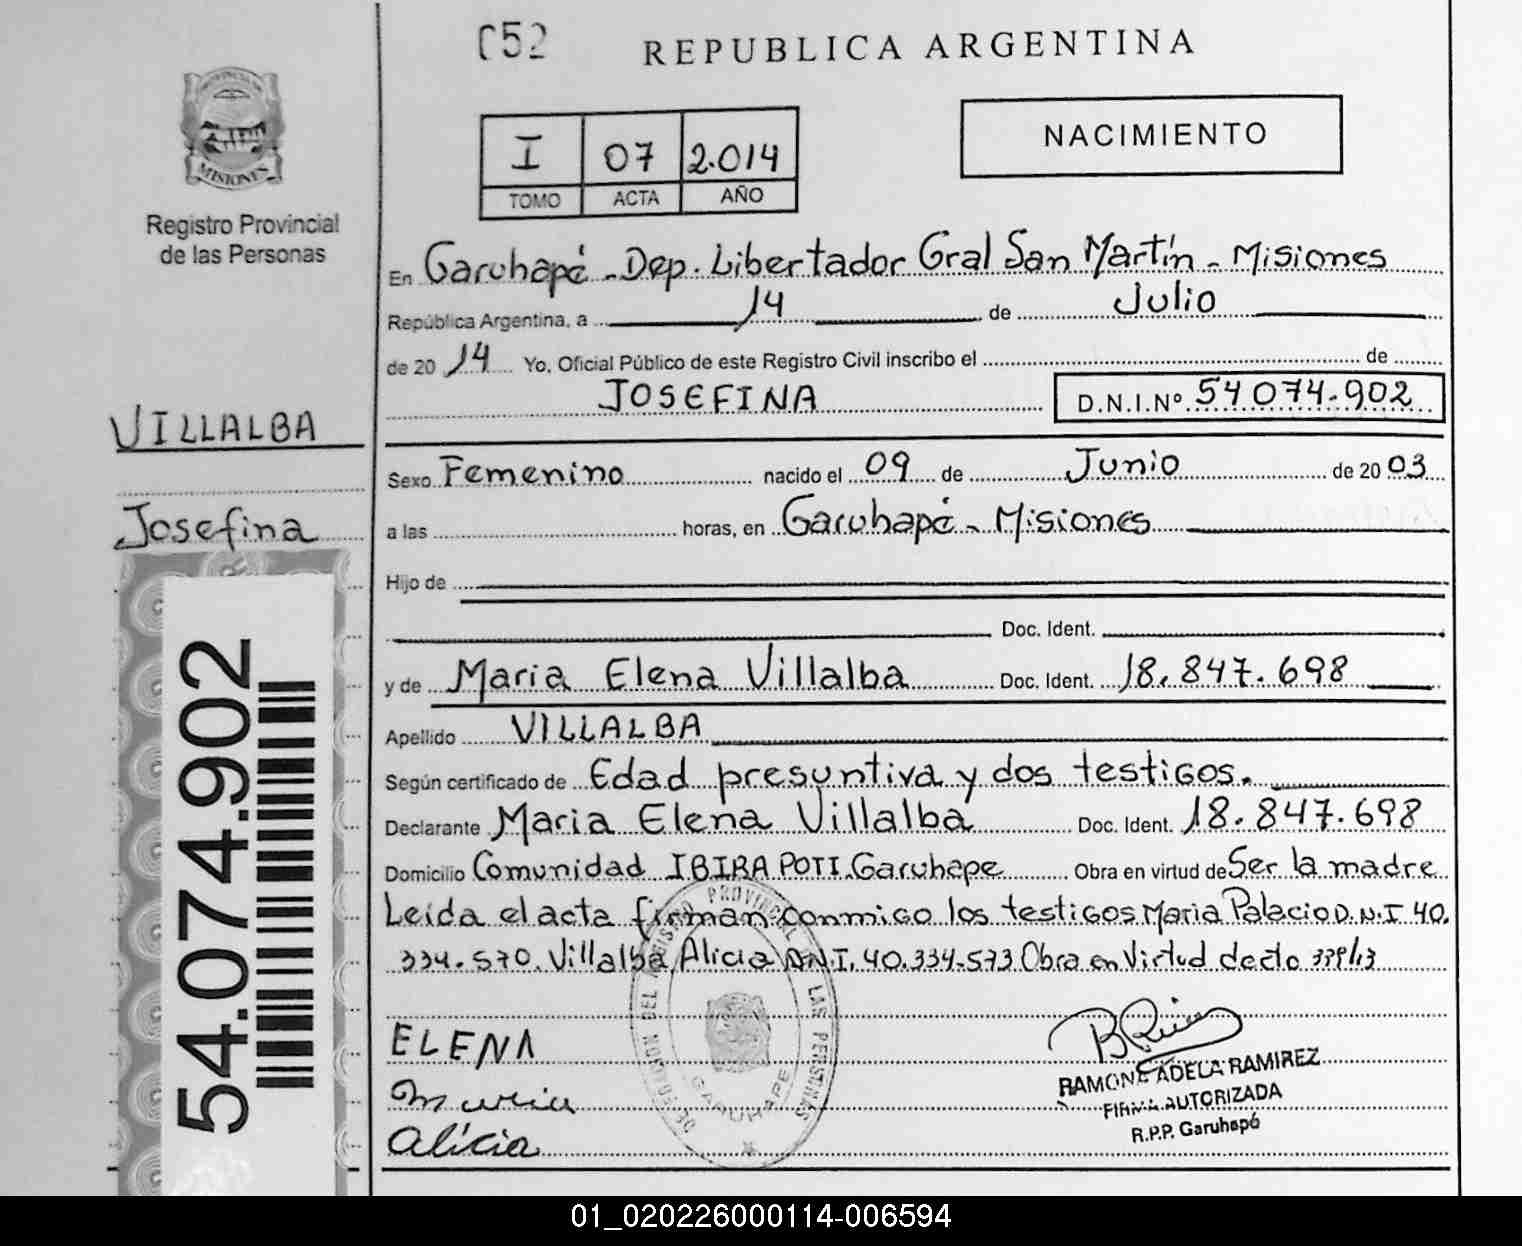 052
REPUBLICA ARGENTINA
PROVINCIA DE
MISIONES
Registro Provincial
de las Personas
I 07 2.014
TOMO ACTA AÑO
NACIMIENTO
En Garuhapé - Dep. Libertador Gral San Martín - Misiones
República Argentina, a 14 de Julio
de 20 14 Yo, Oficial Público de este Registro Civil inscribo el de
JOSEFINA D.N.I.Nº 54074.902
VILLALBA
Josefina
Sexo Femenino nacido el 09 de Junio de 20 03
a las horas, en Garuhapé - Misiones
Hijo de
Doc. Ident.
y de Maria Elena Villalba Doc. Ident. 18.847.698
Apellido VILLALBA
Según certificado de Edad presuntiva y dos testigos.
Declarante Maria Elena Villalba Doc. Ident. 18.847.698
Domicilio Comunidad IBIRA POTI. Garuhape Obra en virtud de Ser la madre
Leida el acta firman conmigo los testigos Maria Palacio D.N.I 40.
334.570. Villalba Alicia D.N.I. 40.334.573 Obra en Virtud decto
ELENA
Maria
Alicia
54.074.902
DEL REGISTRO PROVINCIAL DE LAS PERSONAS
GARUHAPE
RAMONA ADELA RAMIREZ
FIRMA AUTORIZADA
R.P.P. Garuhapé
01_020226000114-006594